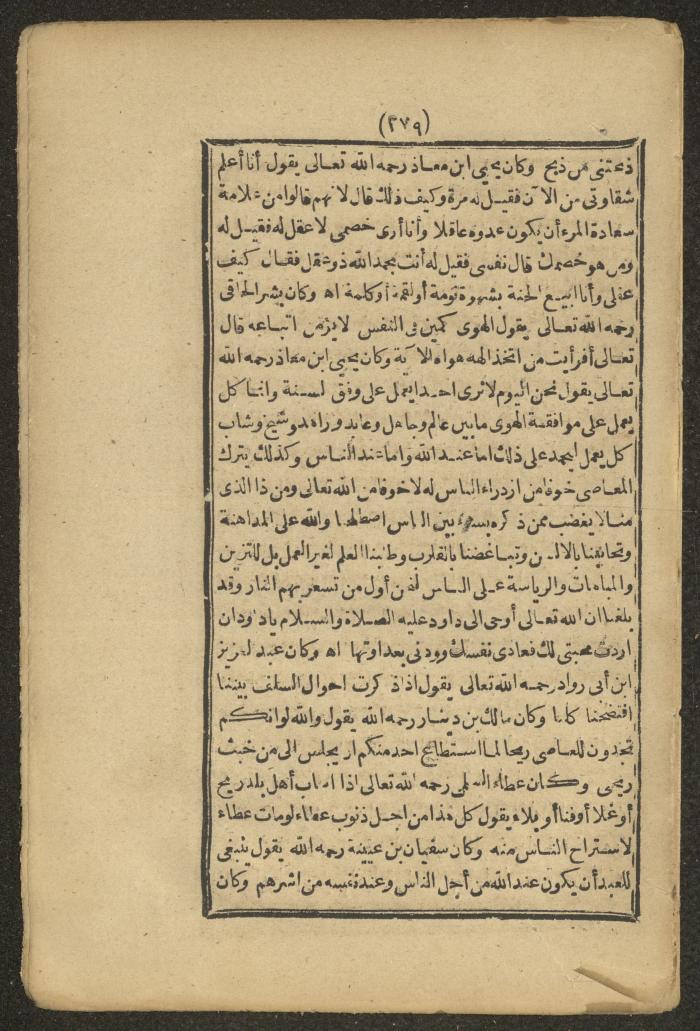 (٣٧٩)
ذبحتنى من ذبح وكان يحيى ابن معاذ رحمه الله تعالى يقول أنا أعلم
شقاوتى من الآن فقيل له مرة وكيف ذلك قال لانهم قالوا من علامة
سعادة المرء أن يكون عدوه عاقلا وأنا أرى خصمى لا عقل له فقيل له
ومن هو خصمك قال نفسى فقيل له أنت بحمد الله ذو عقل فقال كيف
عقلى وأنا ابيع الجنة بشهوة نومة أو لقمة أو كلمة اه وكان بشر الحافى
رحمه الله تعالى يقول الهوى كمين فى النفس لا يؤمن اتباعه قال
تعالى أفرأيت من اتخذ الهه هواه الآية وكان يحيى ابن معاذ رحمه الله
تعالى يقول نحن اليوم لا نرى احدا يعمل على وفق لسنة وانما كل
يعمل على موافقة الهوى ما بين عالم وجاهل وعابد وزاهد وشيخ وشاب
كل يعمل ليحمد على ذلك اما عند الله واما عند الناس وكذلك يترك
المعاصى خوفا من ازدراء الناس له لا خوفا من الله تعالى ومن ذا الذى
منا لا يغضب ممن ذكره بسوء بين الناس اصطلحنا والله على المداهنة
وتحاببنا بالالسن وتباغضنا بالقلوب وطلبنا العلم لغير العمل بل للتزين
والمباهات والرياسة على الناس فنحن أول من تسعر بهم النار وقد
بلغنا ان الله تعالى أوحى الى داود عليه الصلاة والسلام يا داود ان
اردت محبتى لك فعادى نفسك وودنى بعداوتها اه وكان عبد العزيز
ابن أبى رواد رحمه الله تعالى يقول اذا ذكرت احوال السلف بيننا
افتضحنا كلنا وكان مالك بن دينار رحمه الله يقول والله لو انكم
تجدون للمعاصى ريحا لما استطاع احد منكم ان يجلس الى من خبث
ريحى وكان عطاء السلمى رحمه الله تعالى اذا اصاب أهل بلد ريح
أو غلا أو فنا أو بلاء يقول كل هذا من اجل ذنوب عطاء لو مات عطاء
لاستراح الناس منه وكان سفيان بن عيينة رحمه الله يقول ينبغى
للعبد أن يكون عند الله من أجل الناس وعند نفسه من اشرهم وكان